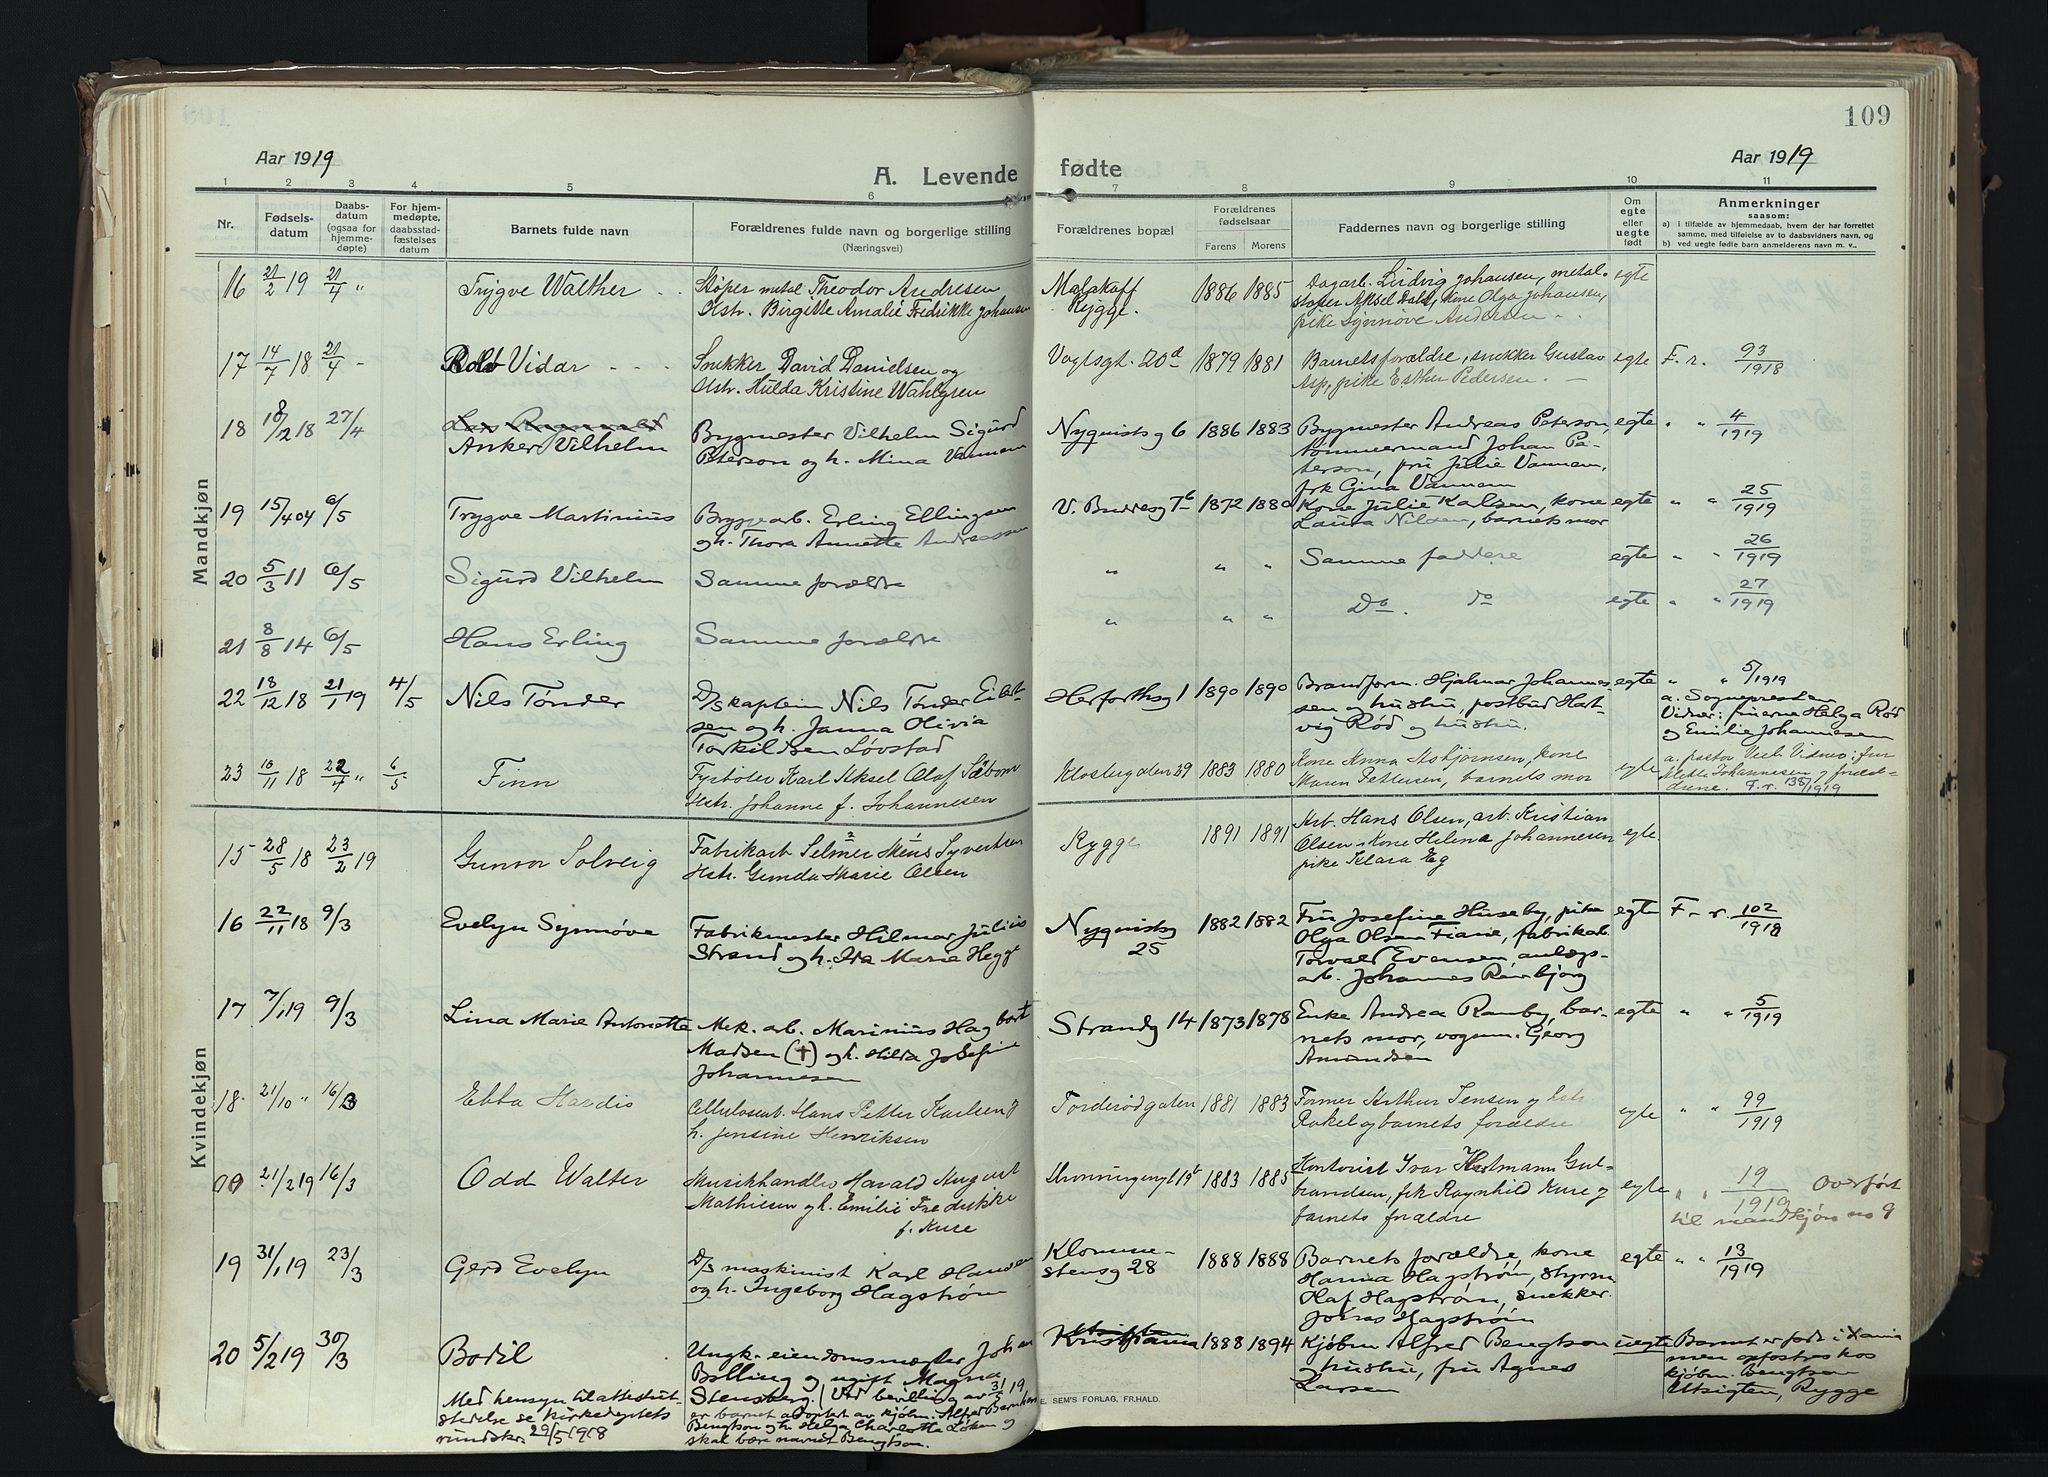 109
Aar 1919
A. Levende fødte
Aar 1919
1 2 3 4 5 6 7 8 9 10 11
Nr.
Fødsels-
datum
Daabs-
datum
(ogsaa for
hjemme-
døpte)
For hjem-
medøpte,
daabsstad-
fæstelses
datum
Barnets fulde navn
Forældrenes fulde navn og borgerlige stilling
(Næringsvei)
Forældrenes bopæl
Forældrenes
fødselsaar
Farens Morens
Faddernes navn og borgerlige stilling
Om
egte
eller
uegte
født
Anmerkninger
saasom:
a) i tilfælde av hjemmedaab, hvem der har forrettet
samme, med tilføielse av to daabsvidners navn, og
b) ved uegte fødte barn anmelderens navn m. v.,
Mandkjøn
16 21/2 19 21/4 " Trygve Walther
Støper metal Theodor Andresen
Hstr. Birgitte Amalie Fredrikke Johansen
Malakoff
Rygge.
1886 1885
Dagarb. Ludvig Johansen, metal-
støper Aksel Dahl, kone Olga Johansen,
pike Synnøve Andersen
egte
17 14/7 18 21/4 - Rolf Vidar
Snekker David Danielsen og
Hstr. Hulda Kristine Wahlgren
Vogtsgt. 20d
1879 1881
Barnets forældre, snekker Gustav
Asp, pike Esther Pedersen.
egte F. r. 93/1918
18 18 27/4
Anker Vilhelm
Bygmester Vilhelm Sigurd
Peterson og h. Mina Vannem
Nyquistsg 6 1886 1883
Bygmester Andreas Peterson,
Tømmermand Johan Pe-
terson, fru Julie Vannem,
frk Gina Vannem
egte " " 4/1919
19 15/4 04 6/5 Trygve Martinius
Bryggearb. Erling Ellingsen
og h. Thora Annette Andreassen
1872 1880
Kone Julie Kalsen, kone
Laura Nilsen, barnets mor
egte " " 25/1919
20 5/3 11 6/5 Sigurd Vilhelm
Samme forældre
" " "
Samme faddere
egte " " 26/1919
21 8/8 14 6/5 Hans Erling
Samme forældre
" " "
Do. do
egte " " 27/1919
22 18/12 18 21/1 19 4/5 Nils Tønder
D/S kaptein Nils Tønder Eilert-
sen og h. Janna Olivia
Torkildsen Løvstad
Herforthsg 1 1890 1890
Brandform. Hjalmar Johannes-
sen og hustru, postbud Hart-
vig Rød og hustru.
egte " " 5/1919
a. Sognepresten
Vidner: fruerne Helga Rød
og Emilie Johannesen
23 10/11 18 22/4 " 6/5 Finn
Fyrbøter Karl Aksel Olaf Säbom
Hstr. Johanne f. Johannesen
Klostergaten 39 1883 1880
Kone Anna Asbjørnsen, kone
Maren Pettersen, barnets mor
egte
F. r. 135/1919
Kvindekjøn
15 28/5 18 23/2 19 Gunvor Solveig
Fabrikarb Selmer Møns Syvertsen
Hstr. Gunda Marie Olsen
Rygge 1891 1891
Arb. Hans Olsen, arb. Kristian
Olsen, Kone Helena Johannesen
pike Klara Eg
egte
16 22/11 18 9/3 Evelyn Synnøve
Fabrikmester Hilmar Julius
Strand og h. Ida Marie Hegg
Nyquistsg
25
1882 1882
Fru Josefine Huseby, pike
Olga Olsen Fiane, fabrikarb
Torvald Evensen, anlægs-
arb. Johannes
egte F. r. 102/1918
17 7/1 19 9/3 Lina Marie Antonette
Mek. arb. Marinius Hagbart
Madsen (†) og h. Hilda Josefine
Johannesen
Strandg 14 1873 1878
Enke Andrea Ramby, bar-
nets mor, vognm. Georg
Amundsen
egte " " 5/1919
18 21/10 " 16/3 Ebba Hardis
Cellulosearb. Hans Petter Karlsen og
h. Jensine Henriksen
Torderødgaten 1881 1883
Former Arthur Jensen og hstr
Rakel og barnets forældre
egte " " 99/1919
21/2 19 16/3 Odd Walter
Musikhandler Harald August
Mathiesen og h. Emilie Fredrikke
f. Kure
1883 1885
Kontorist Ivar Hartmann Gul-
brandsen, frk Ragnhild Kure og
barnets forældre
egte " " 19/1919 Overført
til mandkjøn no 9
19 31/1 19 23/3 Gerd Evelyn
D/S maskinist Karl Hansen
og h. Ingeborg Hagstrøm
Klomme-
stensg 28
1888 1888
Barnets forældre, kone
Hanna Hagstrøm, styrm.
Olaf Hagstrøm, snekker.
Jonas Hagstrøm
egte " " 13/1919
20 5/2 19 30/3 Bodil
Ungk. eiendomsmægler Johan
Bølling og ugift Magna
Stensberg. (Ved bevilling av 31/5 19
er barnet adoptert av kjøbm. Alfred Barnhen
Bengtson og h. Helga Charlotte Løken og
skal bære navnet Bengtson.
Med hensyn til attestut-
stedelse se kirkedeptets
rundskr. 29/5 1918
Kristiania 1888 1894
Kjøbm Alfred Bengtson
og hustru, fru Agnes
Larsen
uegte
Barnet er født i Xania
men opfostres hos
kjøbm. Bengtson
Utsigten, Rygge
E. SEM'S FORLAG, FR.HALD.